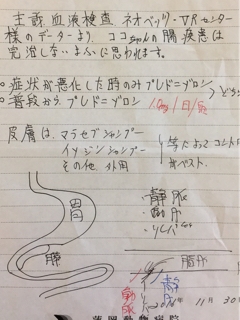 主訴、血液検査、ネオベッツ・VRセンター
様のデーターより、ココちゃんの腸疾患は
完治しないように思われます。
症状が悪化した時のみプレドニゾロン
普段からプレドニゾロン
皮膚は、マラセブシャンプー
イソジンシャンプー
その他、外用
等によってコントロ
がベスト。
胃
腸
静脈
動脈
リンパ
腸
動脈
静脈
11月30
動物病院